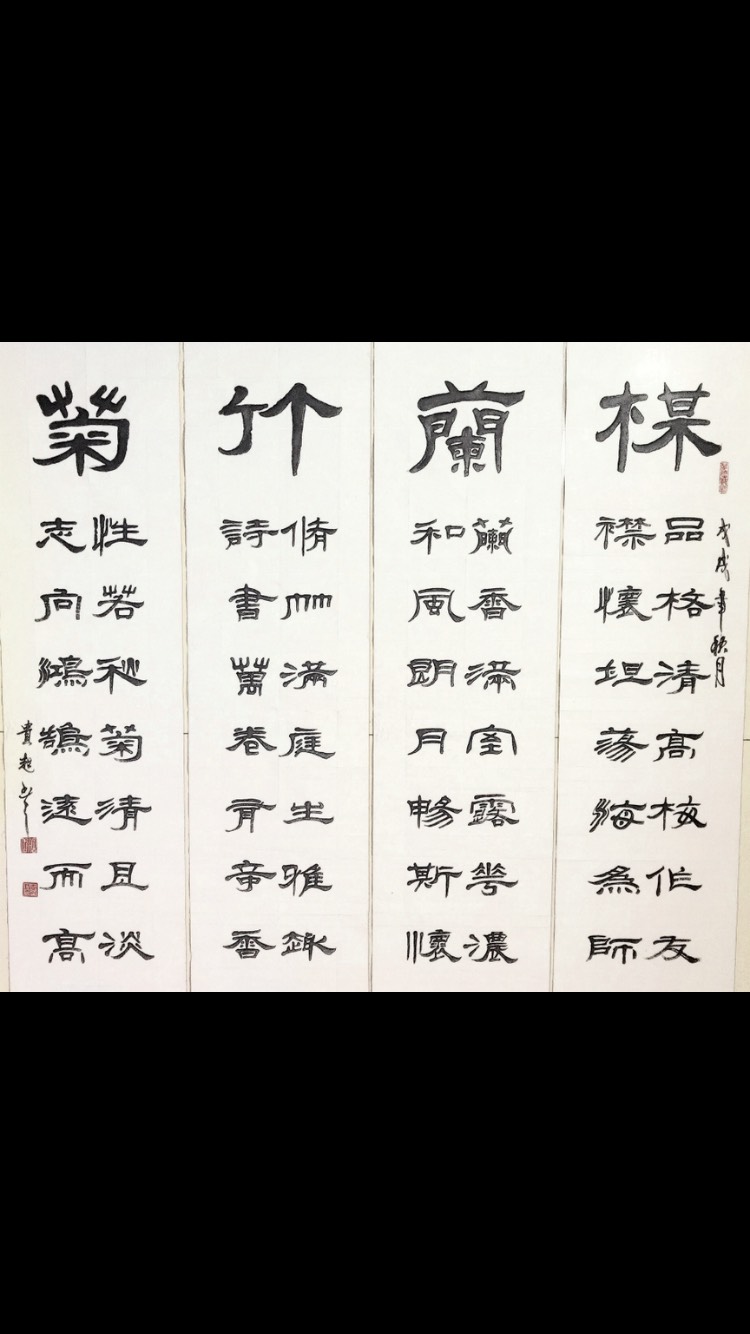 楳
戊戌年秋月
品格清高梅作友
襟懷坦蕩海為師
蘭
蘭香滿室露華濃
和風朗月暢斯懷
竹
脩竹滿庭生雅趣
詩書萬卷有奇香
菊
性若秋菊清且淡
志向鴻鵠遠而高
貴超書